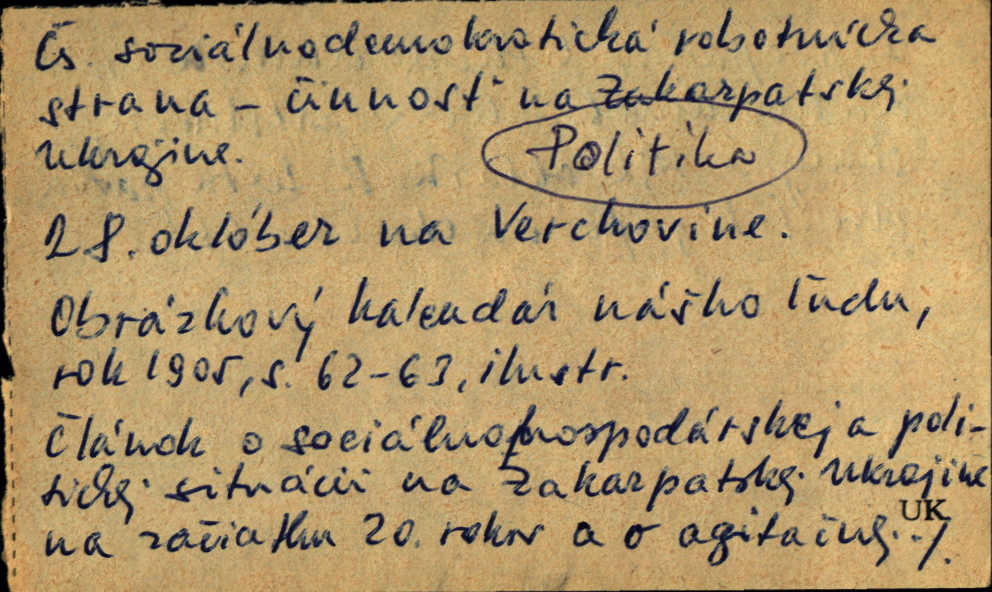 Čs. sociálnodemokratická robotnícka
strana – činnosť na Zakarpatskej
Ukrajine.
Politika
28. október na Verchovine.
Obrázkový kalendár nášho ľudu,
rok 1905, s. 62-63, ilustr.
Článok o sociálnohospodárskej a poli-
tickej situácii na Zakarpatskej Ukrajine
na začiatku 20. rokov a o agitačnej ./.
UK